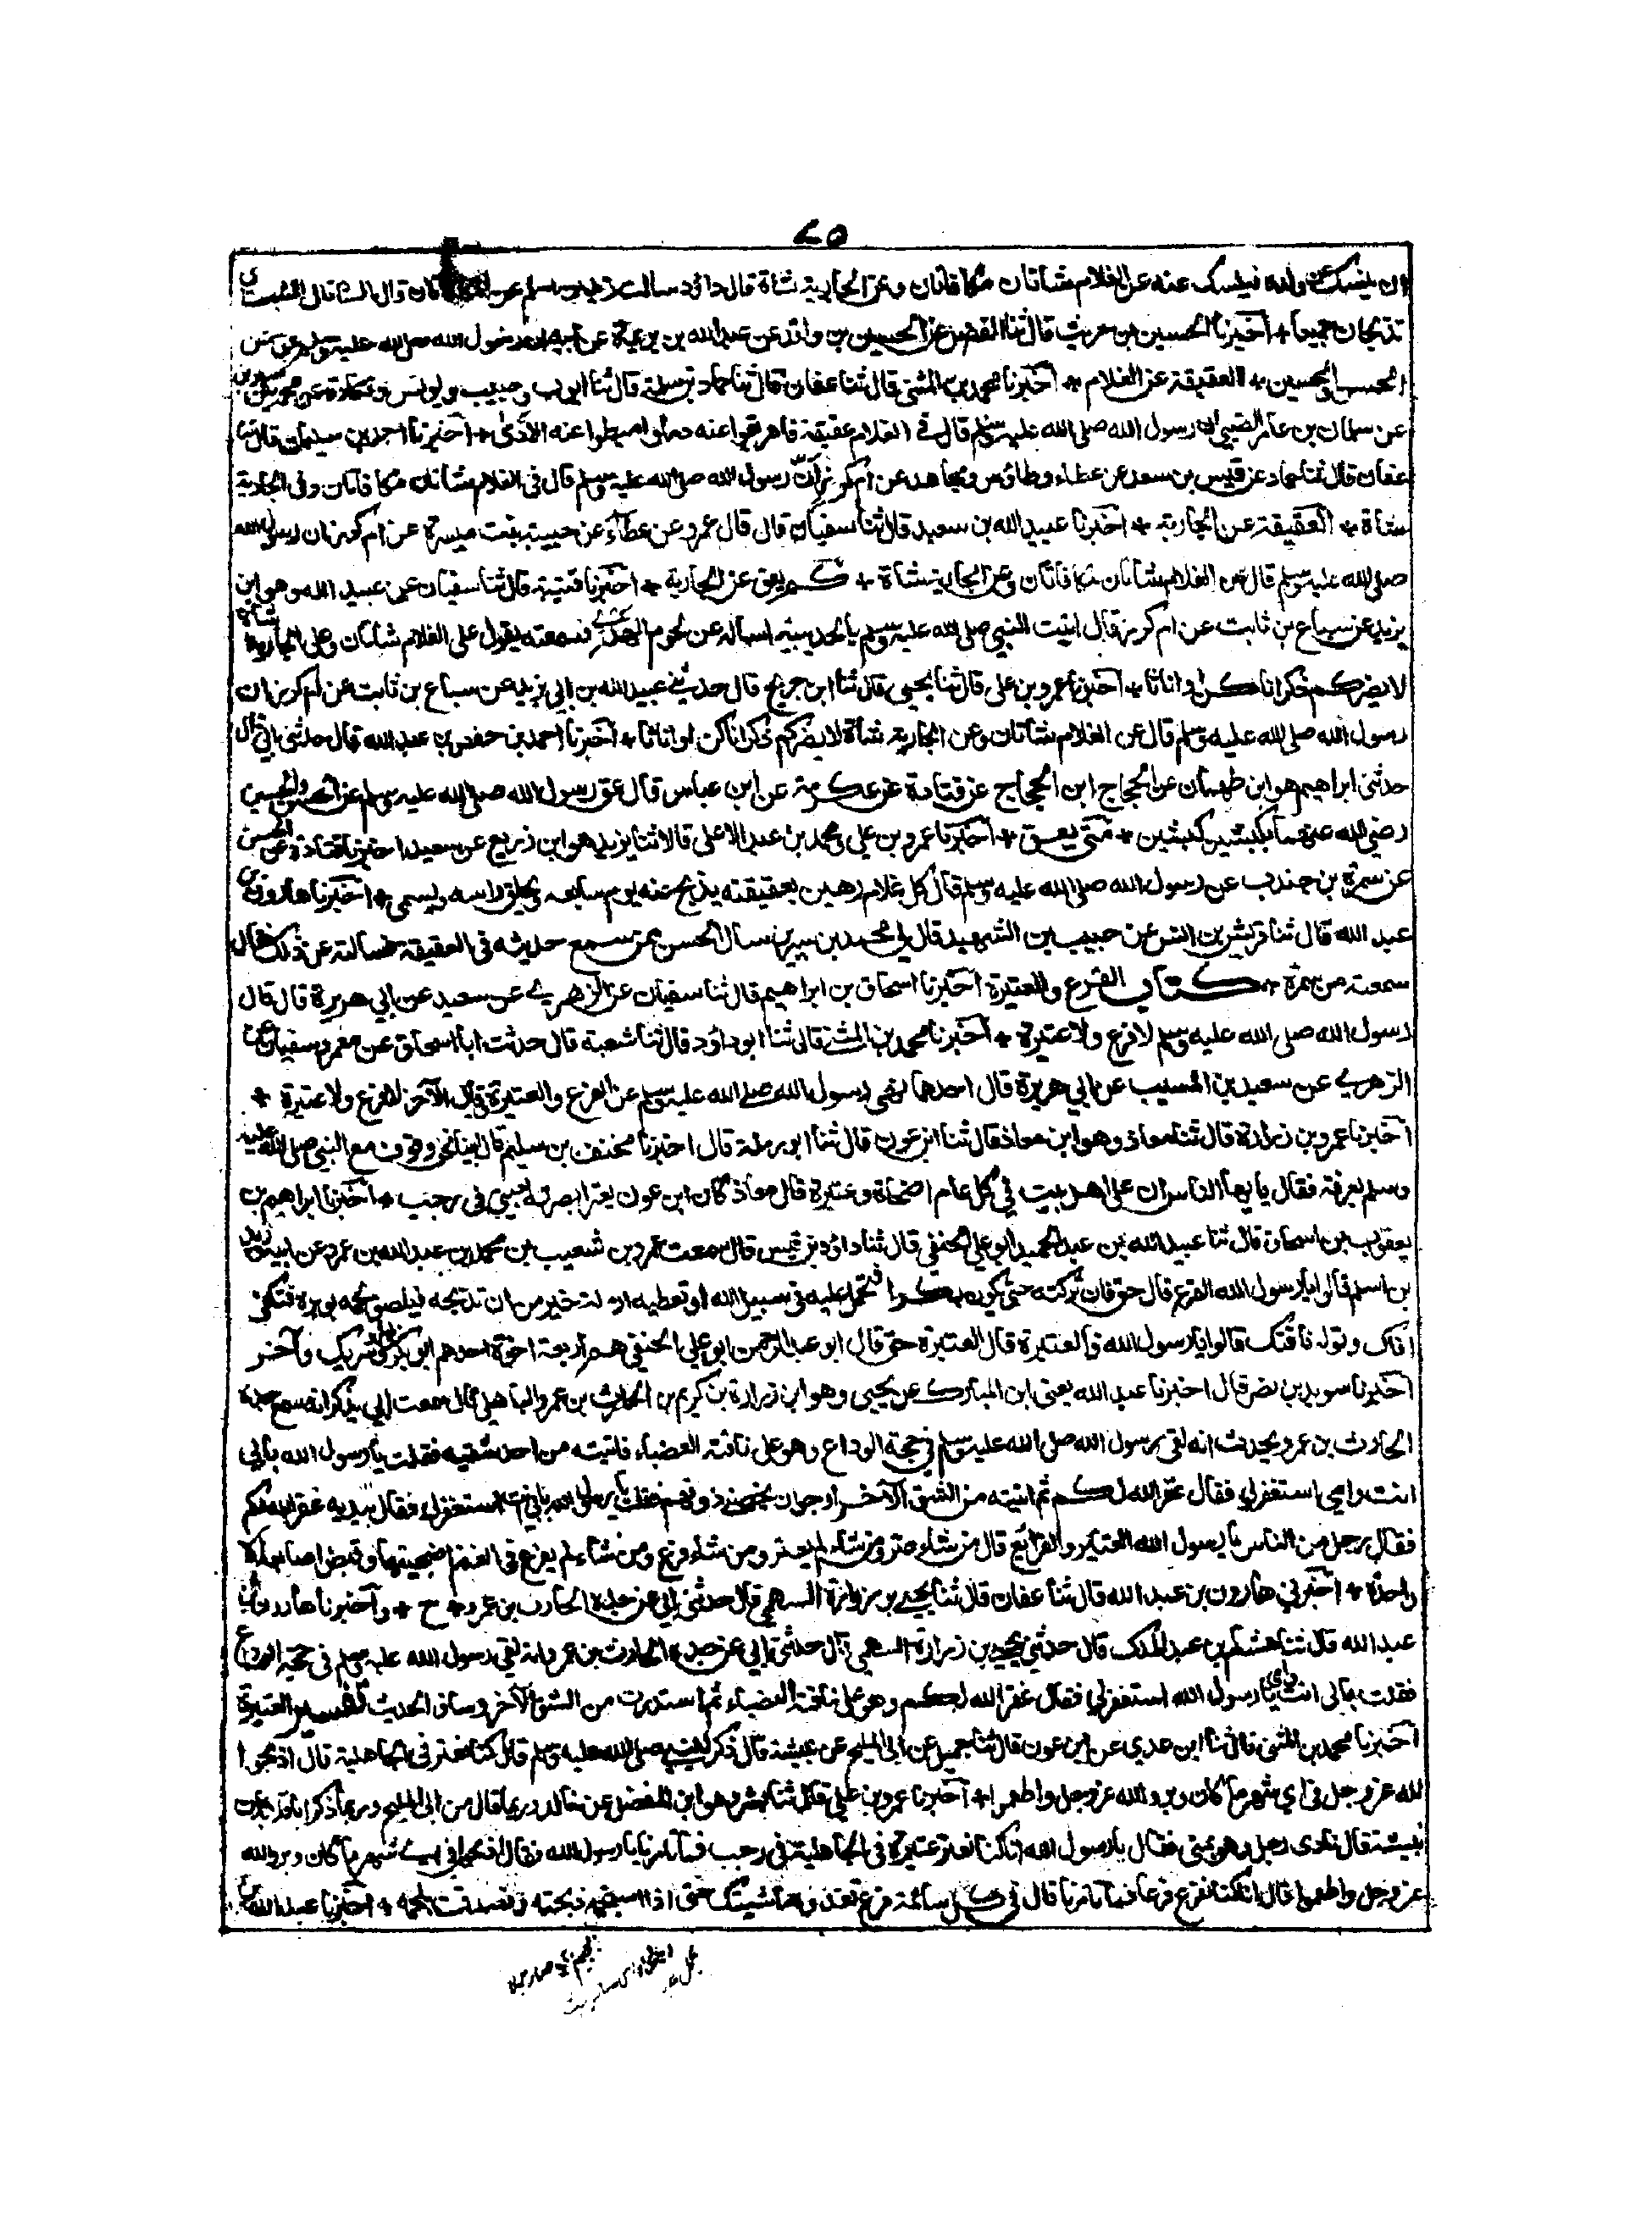 ٧٥
ان ينسك عن ولده فلينسك عنه عن الغلام شاتان مكافاتان وعن الجارية شاة قال داؤد سالت زيد بن اسلم عن المكافاتان قال الشاتان المشبهتان
تذبحان جميعا + اخبرنا الحسين بن حريث قال ثنا الفضل عن الحسين بن واقد عن عبد الله بن بريدة عن ابيه ان رسول الله صلى الله عليه وسلم عق عن
الحسن والحسين + العقيقة عن الغلام + اخبرنا محمد بن المثنى قال ثنا عفان قال ثنا حماد بن سلمة قال ثنا ايوب وحبيب ويونس وقتادة عن محمد بن سيرين
عن سلمان بن عامر الضبي ان رسول الله صلى الله عليه وسلم قال في الغلام عقيقة فاهريقوا عنه دما واميطوا عنه الاذى + اخبرنا احمد بن سليمان قال ثنا
عفان قال ثنا حماد عن قيس بن سعد عن عطاء وطاؤس ومجاهد عن ام كرز ان رسول الله صلى الله عليه وسلم قال في الغلام شاتان مكافاتان وفي الجارية
شاة + العقيقة عن الجارية + اخبرنا عبيد الله بن سعيد قال ثنا سفيان قال قال عمرو عن عطاء عن حبيبة بنت ميسرة عن ام كرز ان رسول الله
صلى الله عليه وسلم قال عن الغلام شاتان مكافاتان وعن الجارية شاة + كم يعق عن الجارية + اخبرنا قتيبة قال ثنا سفيان عن عبيد الله وهو ابن
يزيد عن سباع بن ثابت عن ام كرز قال اتيت النبي صلى الله عليه وسلم بالحديبية اساله عن لحوم الهدي فسمعته يقول على الغلام شاتان وعلى الجارية شاة
لا يضركم ذكرانا كن او اناثا + اخبرنا عمرو بن علي قال ثنا يحيى قال ثنا ابن جريج قال حدثني عبيد الله بن ابي يزيد عن سباع بن ثابت عن ام كرز ان
رسول الله صلى الله عليه وسلم قال عن الغلام شاتان وعن الجارية شاة لا يضركم ذكرانا كن او اناثا + اخبرنا احمد بن حفص بن عبد الله قال حدثني ابي قال
حدثني ابراهيم هو ابن طهمان عن الحجاج ابن الحجاج عن قتادة عن عكرمة عن ابن عباس قال عق رسول الله صلى الله عليه وسلم عن الحسن والحسين
رضي الله عنهما بكبشين كبشين + متى يعق + اخبرنا عمرو بن علي ومحمد بن عبد الاعلى قالا ثنا يزيد هو ابن زريع عن سعيد اخبرنا قتادة عن الحسن
عن سمرة بن جندب عن رسول الله صلى الله عليه وسلم قال كل غلام رهين بعقيقته يذبح عنه يوم سابعه ويحلق راسه ويسمى + اخبرنا هارون بن
عبد الله قال ثنا قريش بن انس عن حبيب بن الشهيد قال لي محمد بن سيرين سال الحسن ممن سمع حديثه في العقيقة فسالته عن ذلك فقال
سمعته من سمرة + كتاب الفرع والعتيرة اخبرنا اسحاق بن ابراهيم قال ثنا سفيان عن الزهري عن سعيد عن ابي هريرة قال قال
رسول الله صلى الله عليه وسلم لا فرع ولا عتيرة + اخبرنا محمد بن المثنى قال ثنا ابو داؤد قال ثنا شعبة قال حدثت ابا اسحاق عن معمر وسفيان عن
الزهري عن سعيد بن المسيب عن ابي هريرة قال احدهما نهى رسول الله صلى الله عليه وسلم عن الفرع والعتيرة وقال الآخر لا فرع ولا عتيرة +
اخبرنا عمرو بن زرارة قال ثنا معاذ وهو ابن معاذ قال ثنا ابن عون قال ثنا ابو رملة قال اخبرنا مخنف بن سليم قال بينا نحن وقوف مع النبي صلى الله عليه
وسلم بعرفة فقال يا يها الناس ان على اهل بيت في كل عام اضحاة وعتيرة قال معاذ كان ابن عون يعتر ابصرته عيني في رجب + اخبرنا ابراهيم بن
يعقوب بن اسحاق قال ثنا عبيد الله بن عبد المجيد ابو علي الحنفي قال ثنا داؤد بن قيس قال سمعت عمرو بن شعيب بن محمد بن عبد الله بن عمرو عن ابيه وزيد
بن اسلم قالوا يا رسول الله الفرع قال حق فان تركته حتى يكون بكرا فتحمل عليه في سبيل الله او تعطيه ارملة خير من ان تذبحه فيلصق لحمه بوبره فتكفئ
اناك وتوله ناقتك قالوا يا رسول الله فالعتيرة قال العتيرة حق قال ابو عبد الرحمن ابو علي الحنفي هم اربعة اخوة احدهم ابو بكر وشريك وآخر
اخبرنا سويد بن نصر قال اخبرنا عبد الله يعني ابن المبارك عن يحيى وهو ابن زرارة بن كريم بن الحارث بن عمرو الباهلي قال سمعت ابي يذكر انه سمع جده
الحارث بن عمرو يحدث انه لقي رسول الله صلى الله عليه وسلم في حجة الوداع وهو على ناقته العضباء فاتيته من احد شقيه فقلت يا رسول الله بابي
انت وامي استغفر لي فقال غفر الله لكم ثم اتيته من الشق الآخر ارجو ان يخصني دونهم فقلت يا رسول الله استغفر لي فقال بيديه غفر الله لكم
فقال رجل من الناس يا رسول الله العتائر والفرائع قال من شاء عتر ومن شاء لم يعتر ومن شاء فرع ومن شاء لم يفرع في الغنم اضحيتها وقبض اصابعه الا
واحدة + اخبرني هارون بن عبد الله قال ثنا عفان قال ثنا يحيى بن زرارة السهمي قال حدثني ابي عن جده الحارث بن عمرو + ح + واخبرنا هارون بن
عبد الله قال ثنا هشام بن عبد الملك قال حدثني يحيى بن زرارة السهمي قال حدثني ابي عن جده الحارث بن عمرو انه لقي رسول الله عليه وسلم في حجة الوداع
فقلت بابي انت وامي يا رسول الله استغفر لي فقال غفر الله لكم وهو على ناقته العضباء ثم استدرت من الشق الآخر وساق الحديث تفسير العتيرة
اخبرنا محمد بن المثنى قال ثنا ابن عدي عن ابن عون قال ثنا جميل عن ابي المليح عن نبيشة قال ذكر للنبي صلى الله عليه وسلم قال كنا نعتر في الجاهلية قال اذبحوا
لله عز وجل في اي شهر ما كان وبروا الله عز وجل واطعموا + اخبرنا عمرو بن علي قال ثنا بشر وهو ابن المفضل عن خالد وربما قال من ابي المليح وربما ذكر ابا قلابة عن
نبيشة قال نادى رجل وهو بمنى فقال يا رسول الله انا كنا نعتر عتيرة في الجاهلية في رجب فما تامرنا يا رسول الله قال اذبحوا في اي شهر ما كان وبروا الله
عز وجل واطعموا قال انا كنا نفرع فرعا فما تامرنا قال في كل سائمة فرع تغذوه ماشيتك حتى اذا استحمل ذبحته وتصدقت بلحمه + اخبرنا عبد الله بن